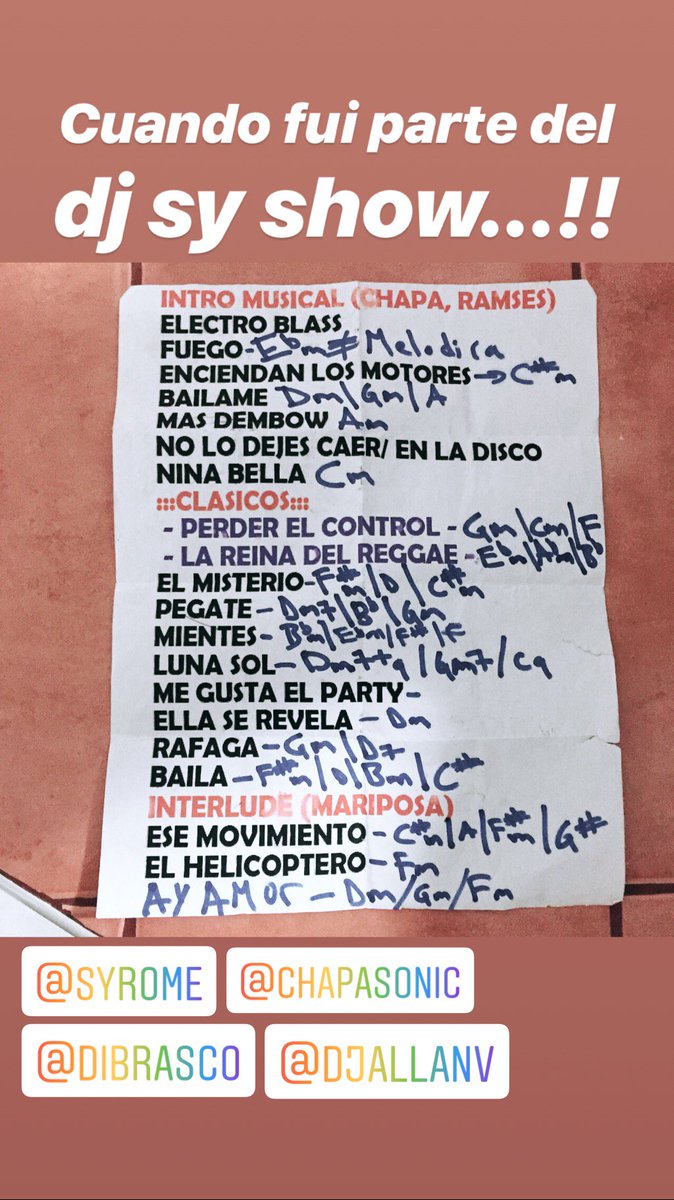 Cuando fui parte del
dj sy show...!!
INTRO MUSICAL (CHAPA, RAMSES)
ELECTRO BLASS
FUEGO-Ebm≠ Melodica
ENCIENDAN LOS MOTORES→C#m
BAILAME Dm/Gm/A
MAS DEMBOW Am
NO LO DEJES CAER/ EN LA DISCO
NINA BELLA Cm
:::CLASICOS:::
- PERDER EL CONTROL - Gm/Cm/F
- LA REINA DEL REGGAE - Ebm/Abm/Bb
EL MISTERIO-F#m/D/C#m
PEGATE-Dm7/Bb/Gm
MIENTES-Bbm/Ebm/F#/F
LUNA SOL-Dm7+9/Gm7/C9
ME GUSTA EL PARTY-
ELLA SE REVELA - Dm
RAFAGA-Gm/D7
BAILA-F#m/D/Bm/C#
INTERLUDE (MARIPOSA)
ESE MOVIMIENTO-C#m/A/F#m/G#
EL HELICOPTERO-Fm
AY AMOR - Dm/Gm/Fm
@SYROME @CHAPASONIC
@DIBRASCO @DJALLANV